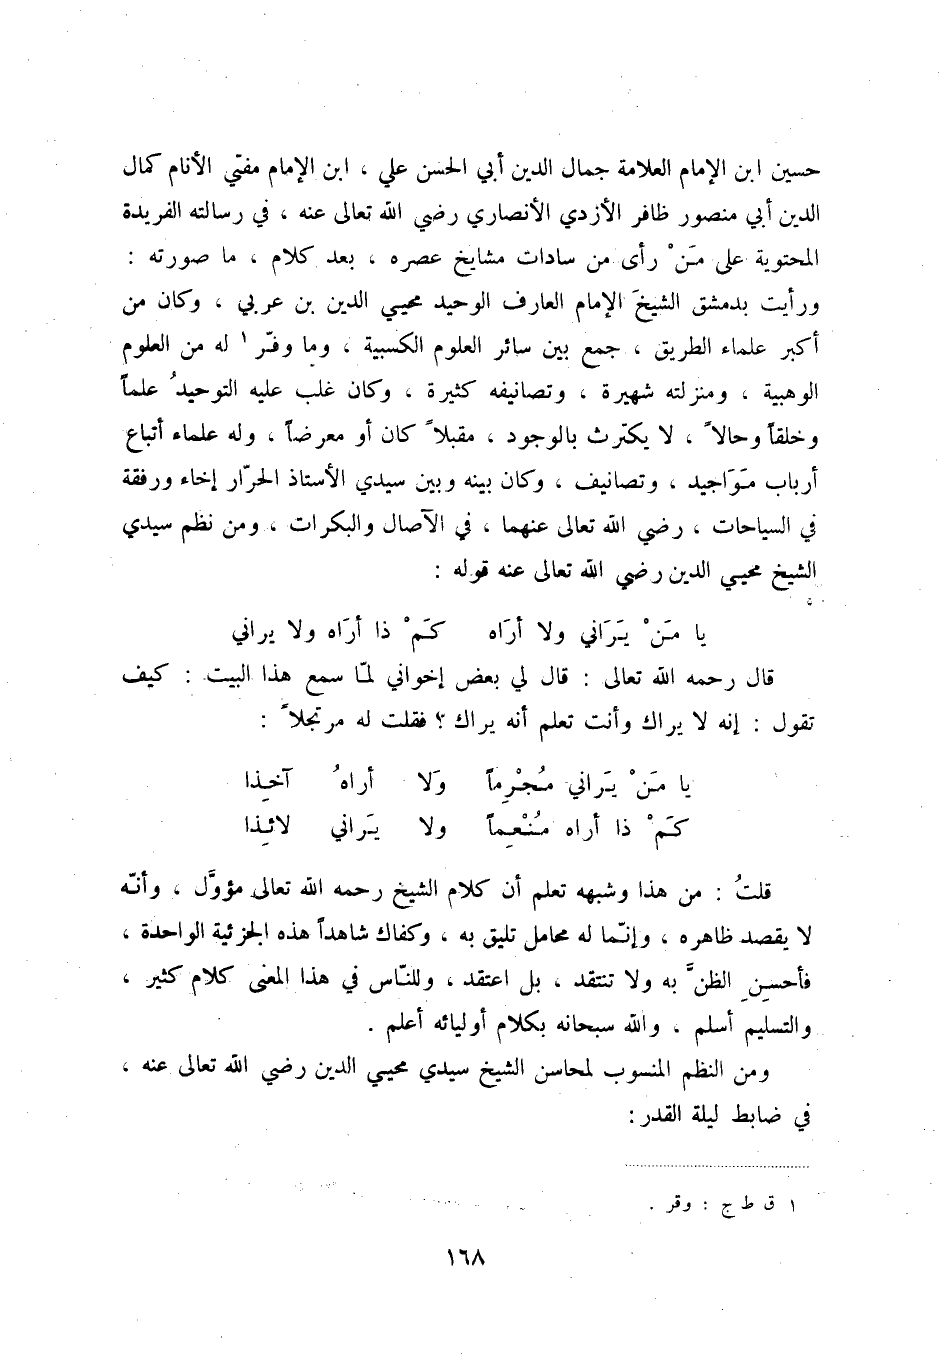 حسين ابن الإمام العلامة جمال الدين أبي الحسن علي ، ابن الإمام مفتي الأنام كمال
الدين أبي منصور ظافر الأزدي الأنصاري رضي الله تعالى عنه ، في رسالته الفريدة
المحتوية على مَنْ رأى من سادات مشايخ عصره ، بعد كلام ، ما صورته :
ورأيت بدمشق الشيخَ الإمام العارف الوحيد محيي الدين بن عربي ، وكان من
أكبر علماء الطريق ، جمع بين سائر العلوم الكسبية ، وما وفّر ١ له من العلوم
الوهبية ، ومنزلته شهيرة ، وتصانيفه كثيرة ، وكان غلب عليه التوحيدُ علماً
وخلقاً وحالاً ، لا يكترث بالوجود ، مقبلاً كان أو معرضاً ، وله علماء أتباع
أرباب مَوَاجيد ، وتصانيف ، وكان بينه وبين سيدي الأستاذ الحرّار إخاء ورفقة
في السياحات ، رضي الله تعالى عنهما ، في الآصال والبكرات ، ومن نظم سيدي
الشيخ محيي الدين رضي الله تعالى عنه قوله :
يا مَنْ يَرَاني ولا أرَاه كَمْ ذا أرَاه ولا يراني
قال رحمه الله تعالى : قال لي بعض إخواني لمّا سمع هذا البيت : كيف
تقول : إنه لا يراك وأنت تعلم أنه يراك ؟ فقلت له مرتجلاً :
يا مَنْ يَراني مُجْرِماً وَلا أراهُ آخِذا
كَمْ ذا أراه مُنْعِماً ولا يَراني لائِذا
قلتُ : من هذا وشبهه تعلم أن كلام الشيخ رحمه الله تعالى مؤوَّل ، وأنّه
لا يقصد ظاهره ، وإنّما له محامل تليق به ، وكفاك شاهداً هذه الجزئية الواحدة ،
فأحسِنِ الظنَّ به ولا تنتقد ، بل اعتقد ، وللنّاس في هذا المعنى كلام كثير ،
والتسليم أسلم ، والله سبحانه بكلام أوليائه أعلم .
ومن النظم المنسوب لمحاسن الشيخ سيدي محيي الدين رضي الله تعالى عنه ،
في ضابط ليلة القدر :
١ ق ط ج : وقر .
١٦٨